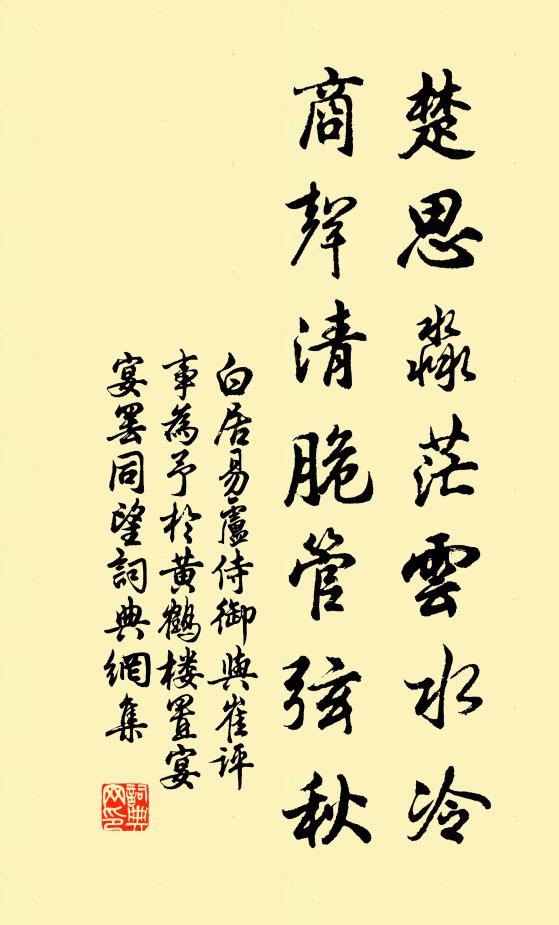 楚思淼茫雲水冷
商聲清脆管弦秋
白居易盧侍御與崔評
事為予於黃鶴樓置宴
宴罷同望詞典網集
詞典
网印